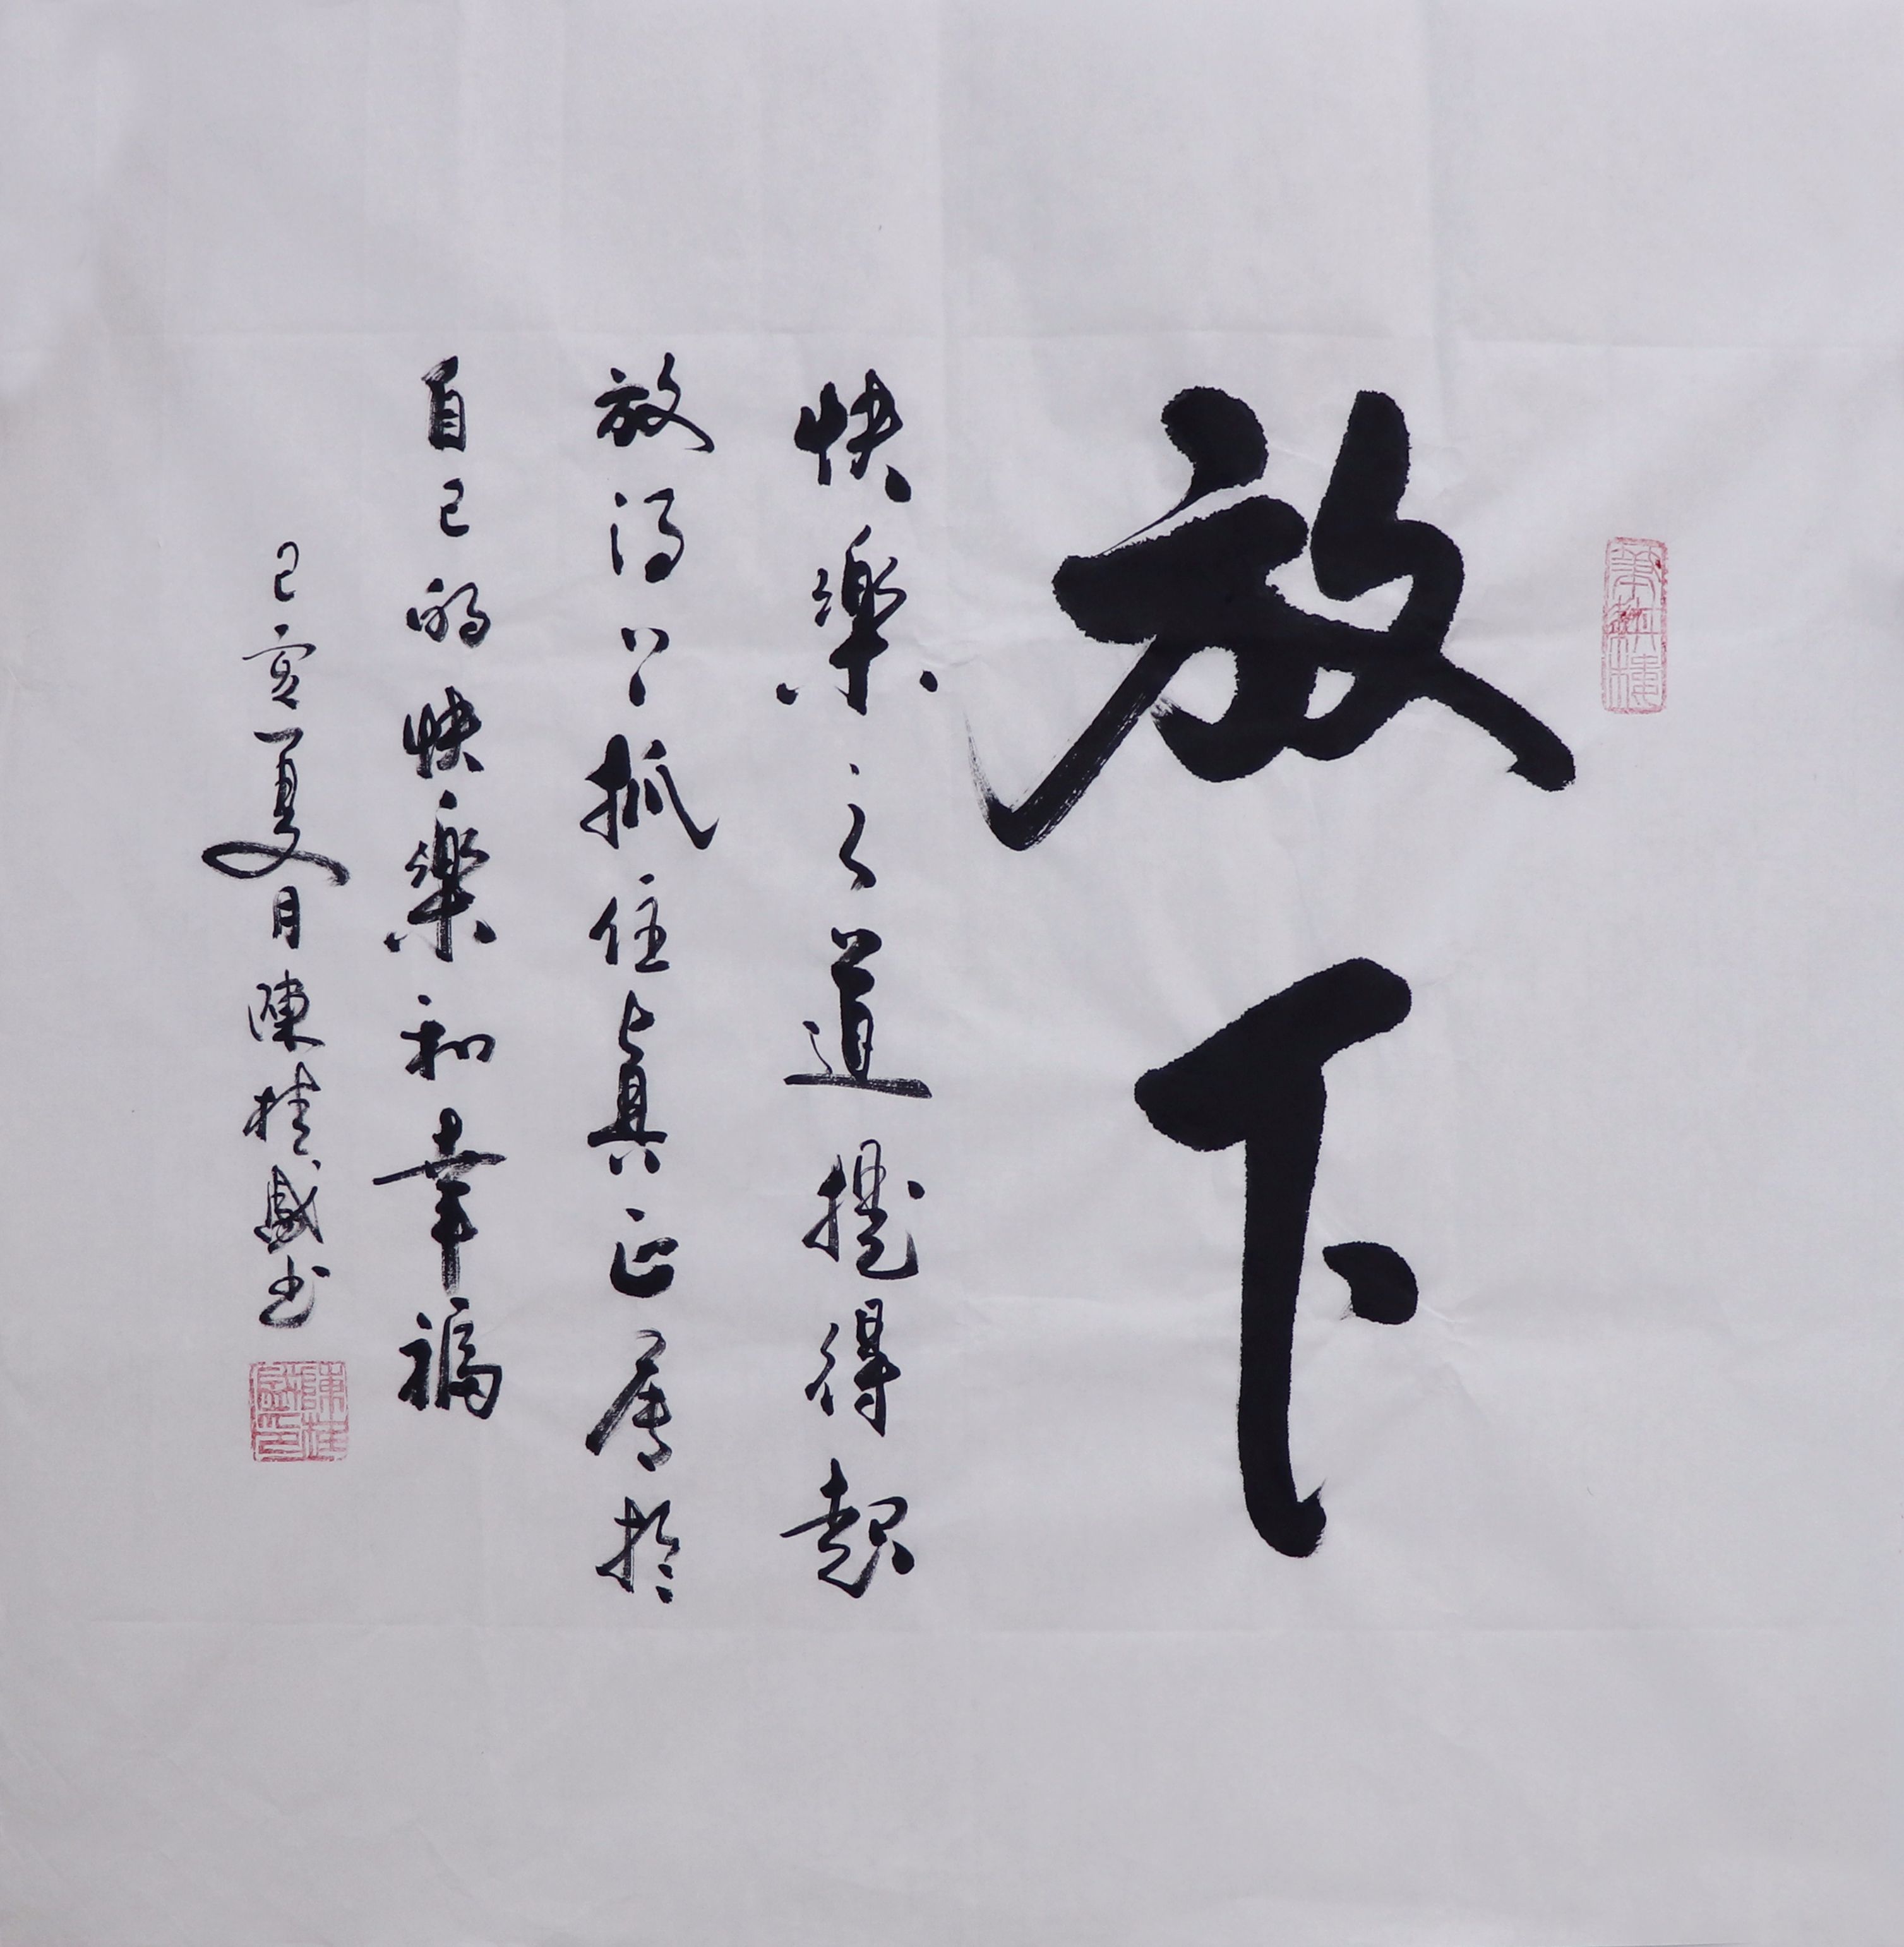 放下
快樂之道提得起
放得下抓住真正屬於
自己的快樂和幸福
己亥夏月陳桂盛书
陳桂盛印